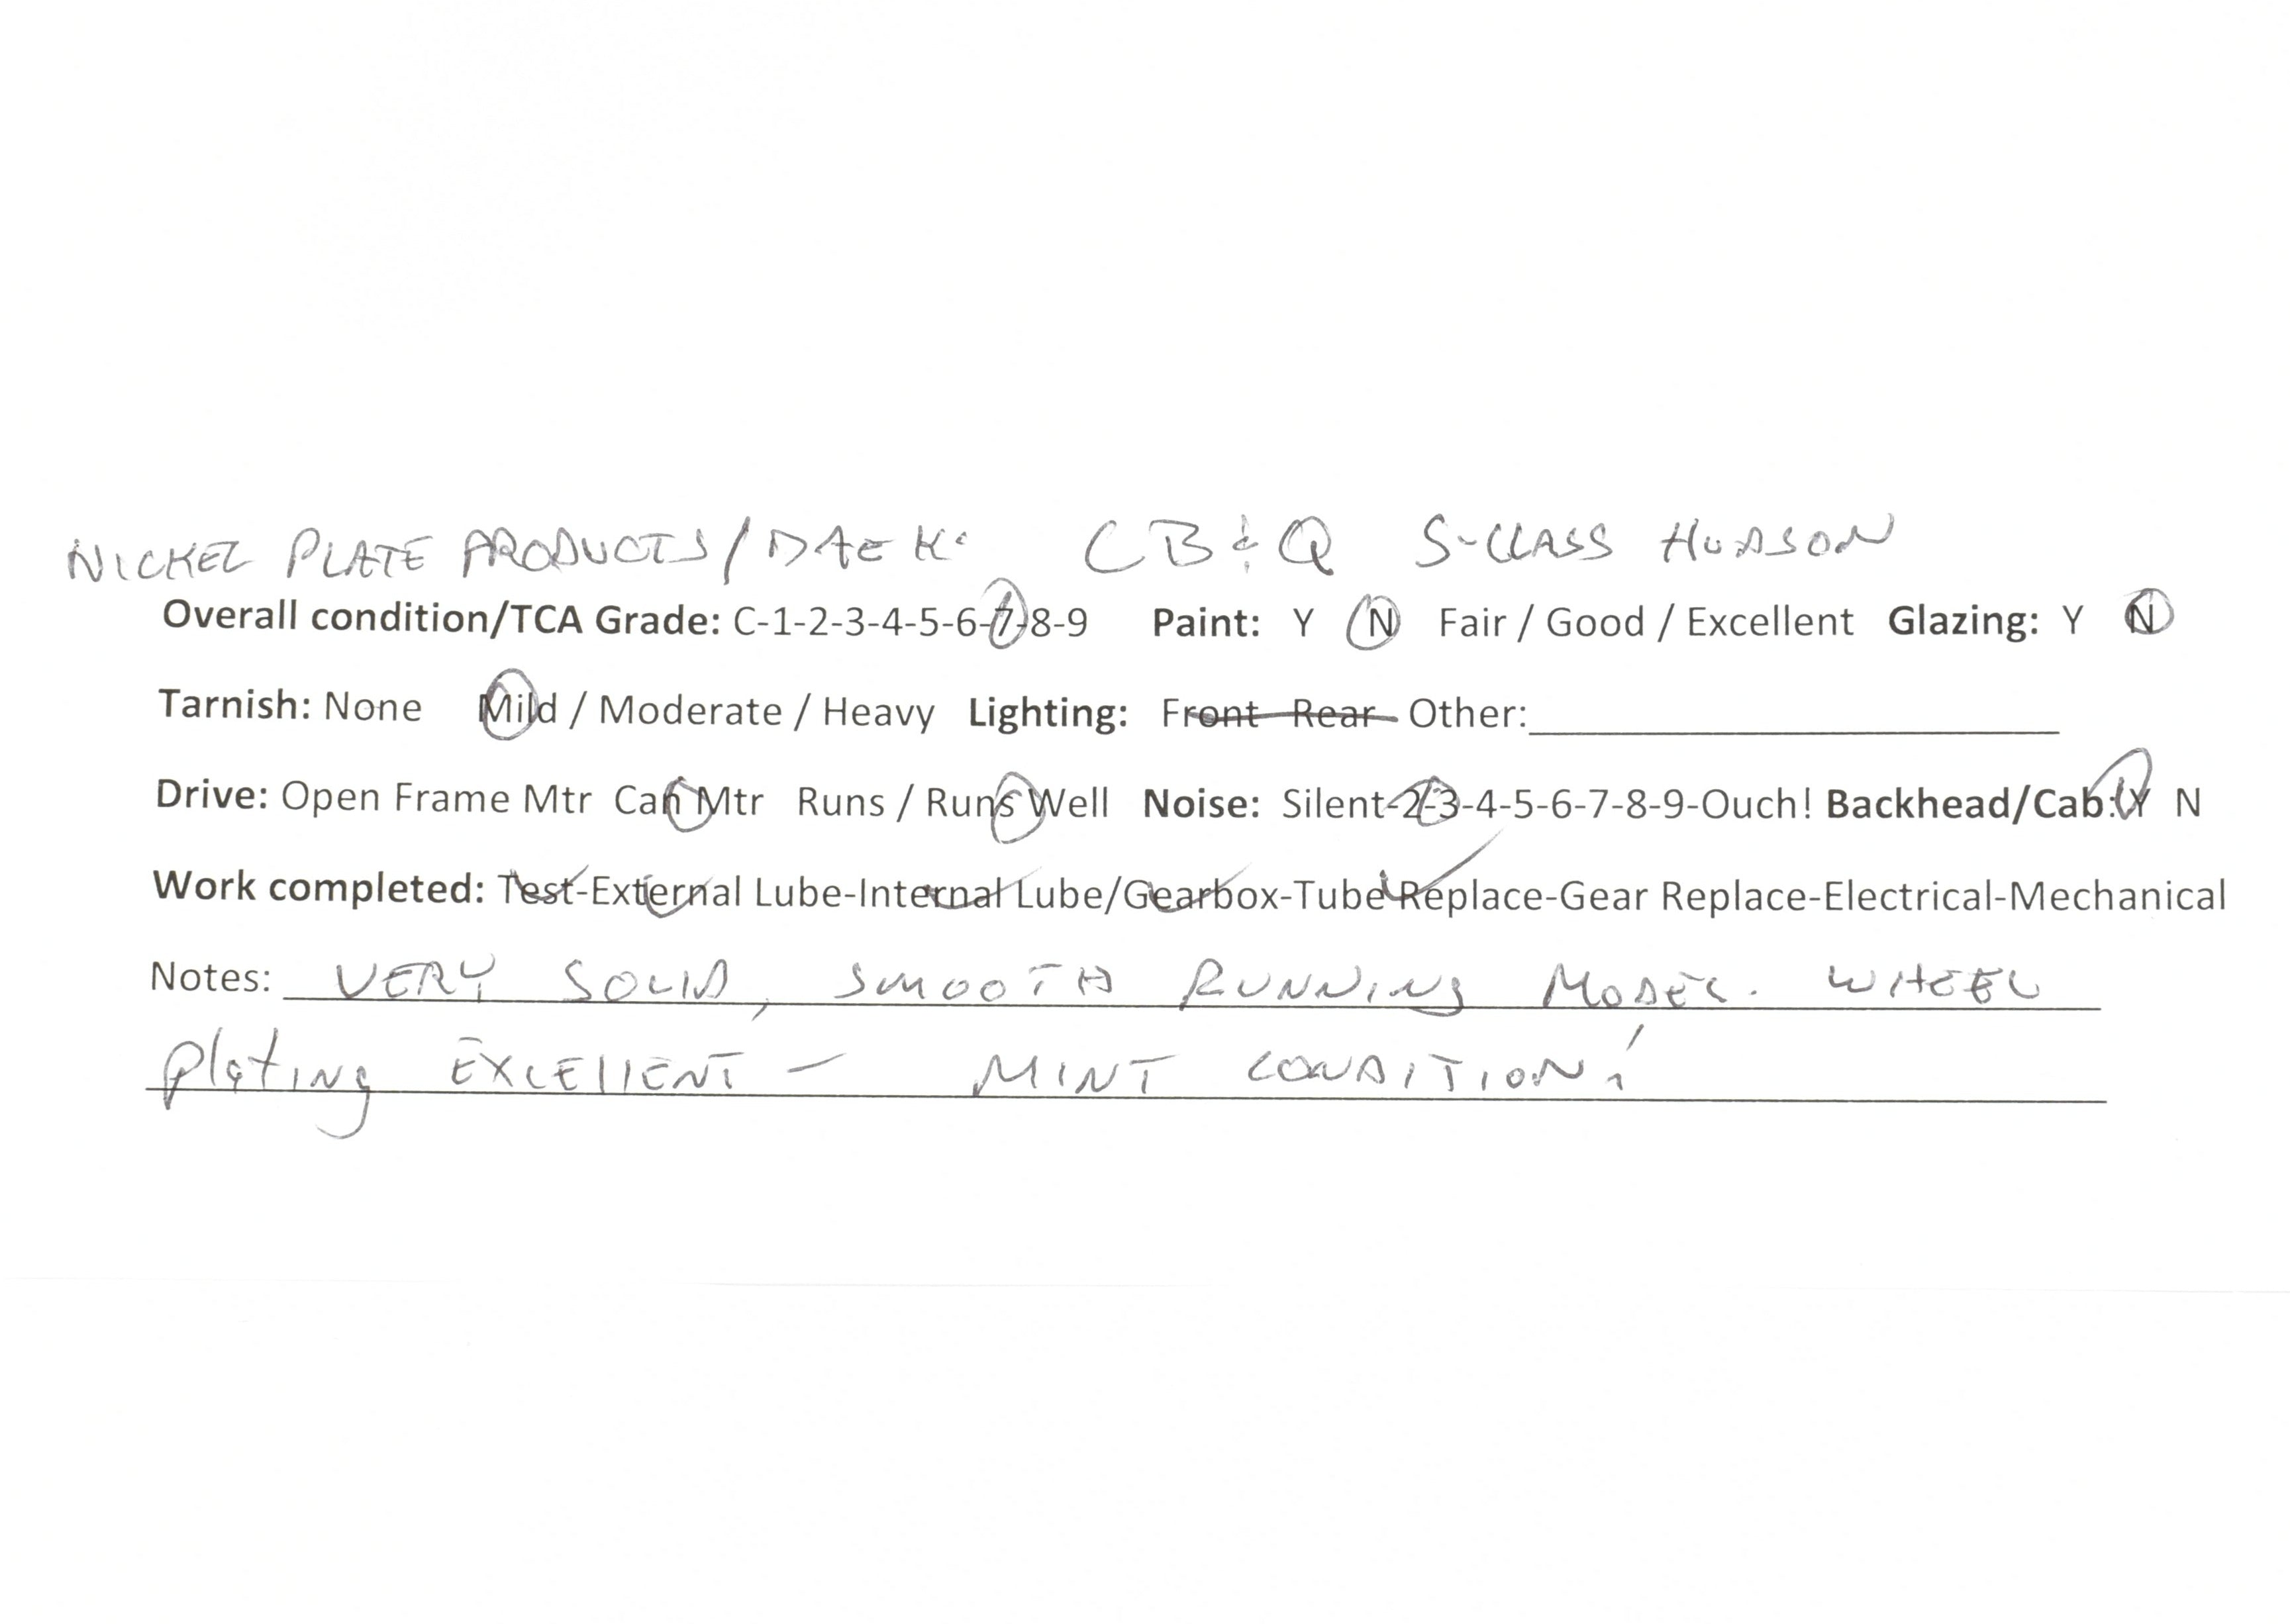 NICKEL PLATE PRODUCTS/DAEKI CB&Q S-CLASS HUDSON
Overall condition/TCA Grade: C-1-2-3-4-5-6-7-8-9 Paint: Y N Fair / Good / Excellent Glazing: Y N
Tarnish: None Mild / Moderate / Heavy Lighting: Front Rear Other:
Drive: Open Frame Mtr Can Mtr Runs / Runs Well Noise: Silent-2-3-4-5-6-7-8-9-Ouch! Backhead/Cab: Y N
Work completed: Test-External Lube-Internal Lube/Gearbox-Tube Replace-Gear Replace-Electrical-Mechanical
Notes: VERY SOLID, SMOOTH RUNNING MODEL. WHEEL
Plating EXCELLENT - MINT CONDITION!